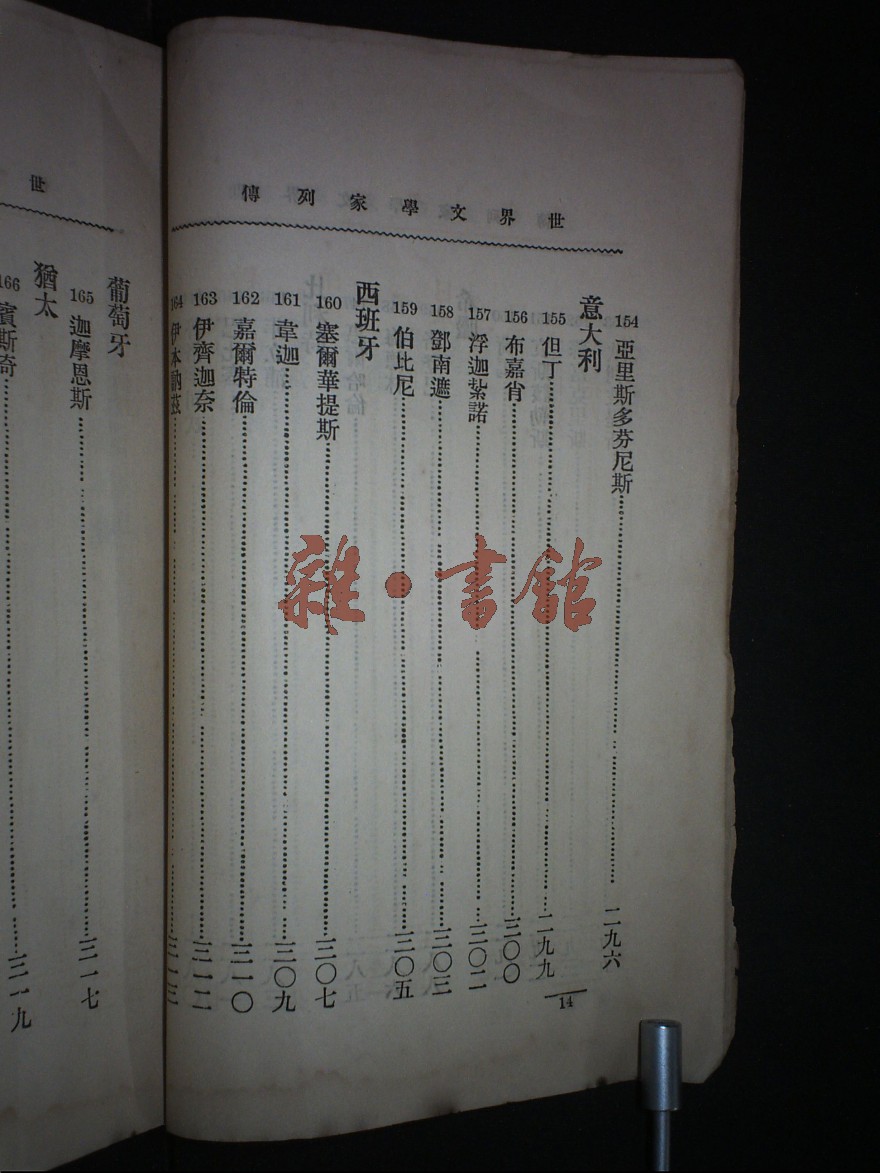 世界文學家列傳
154 亞里斯多芬尼斯 二九六
意大利
155 但丁 二九九
156 布嘉肖 三〇〇
157 浮迦紮諾 三〇二
158 鄧南遮 三〇三
159 伯比尼 三〇五
西班牙
160 塞爾華提斯 三〇七
161 韋迦 三〇九
162 嘉爾特倫 三一〇
163 伊齊迦奈 三一二
164 伊本訥茲 三一三
14
世
葡萄牙
165 迦摩恩斯 三一七
猶太
166 賓斯奇 三一九
雜·書館